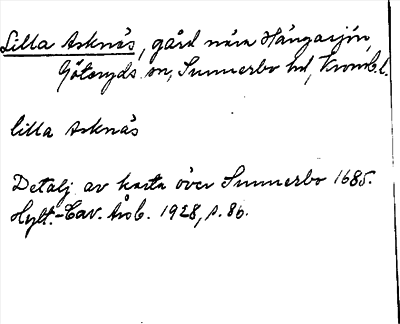 Lilla Asknäs, gård nära Hångasjön,
Göteryds sn, Sunnerbo hd, Kronob. l.
lilla Asknäs
Detalj av karta över Sunnerbo 1685.
Hylt.-Cav. Årsb. 1928, s. 86.